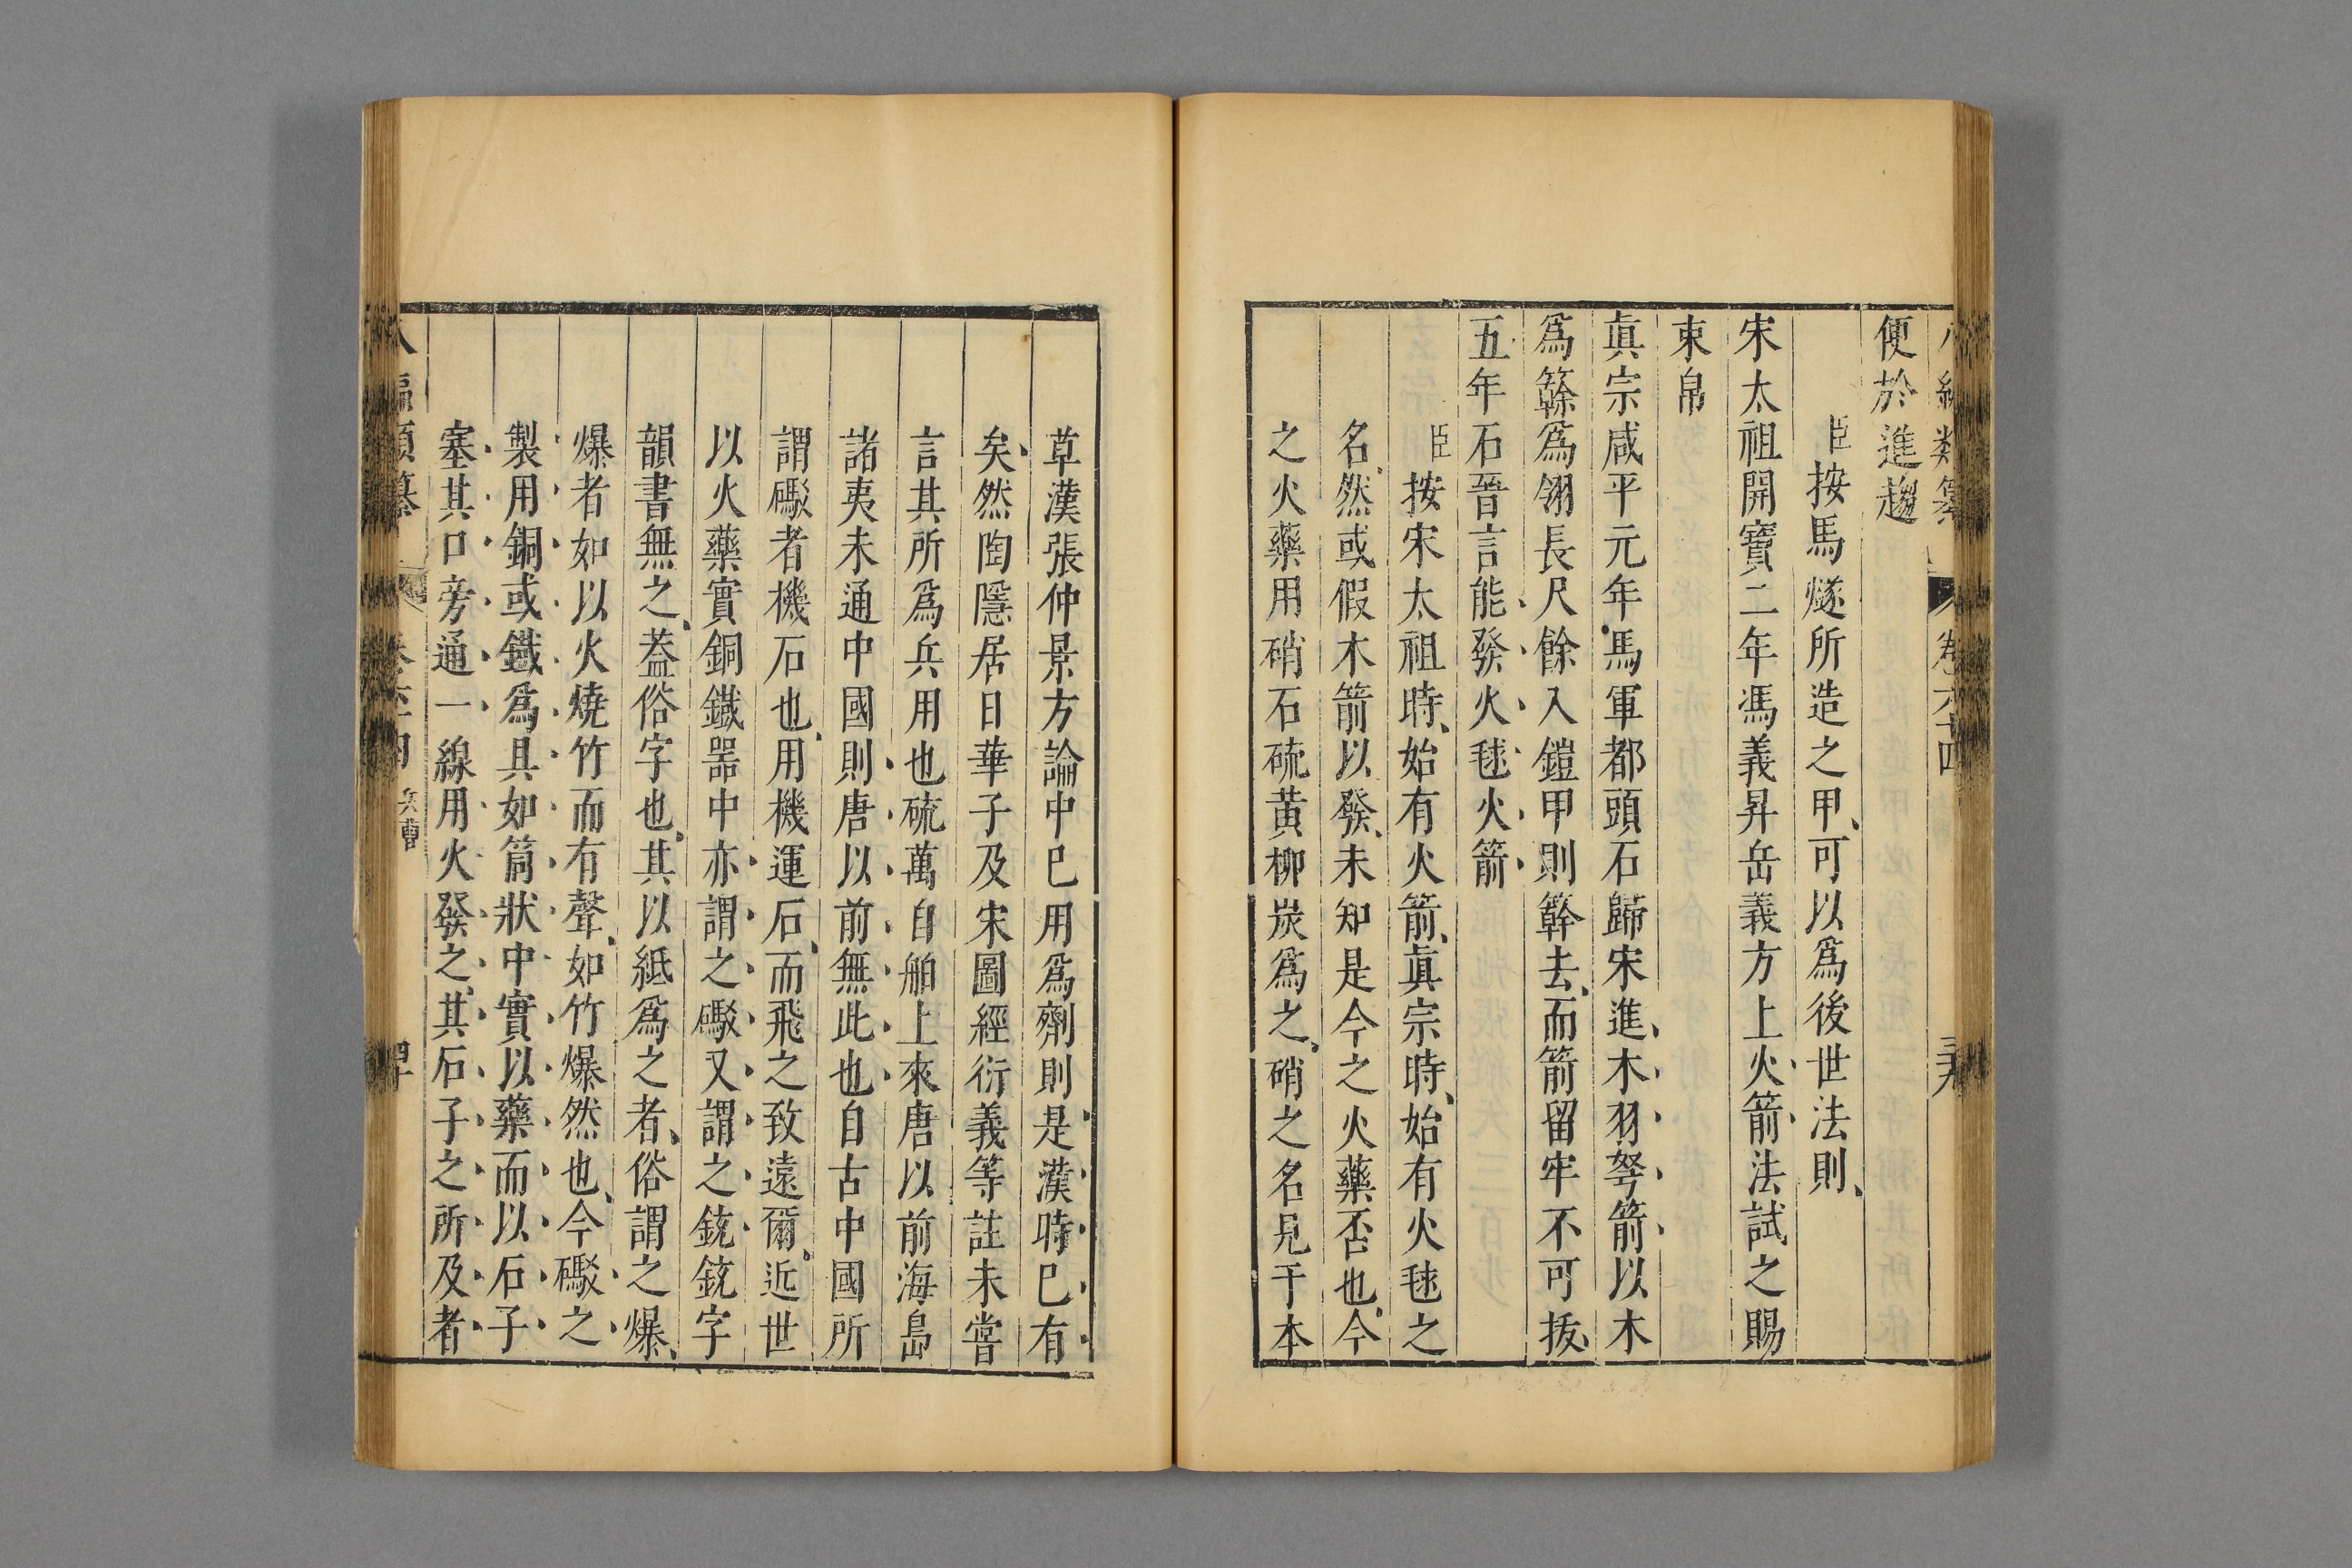 便於進趨
臣按馬燧所造之甲可以爲後世法則
宋太祖開寶二年馮義昇岳義方上火箭法試之賜
束帛
眞宗咸平元年馬軍都頭石歸宋進木羽弩箭以木
爲簳爲翎長尺餘入鎧甲則簳去而箭留牢不可拔
五年石晉言能發火毬火箭
臣按宋太祖時始有火箭眞宗時始有火毬之
名然或假木箭以發未知是今之火藥否也今
之火藥用硝石硫黃柳炭爲之硝之名見于本
草漢張仲景方論中已用爲劑則是漢時已有
矣然陶隱居日華子及宋圖經衍義等註未嘗
言其所爲兵用也硫萬自舶上來唐以前海島
諸夷未通中國則唐以前無此也自古中國所
謂礮者機石也用機運石而飛之致遠爾近世
以火藥實銅鐵器中亦謂之礮又謂之銃銃字
韻書無之蓋俗字也其以紙爲之者俗謂之爆
爆者如以火燒竹而有聲如竹爆然也今礮之
製用銅或鐵爲具如筩狀中實以藥而以石子
塞其口旁通一線用火發之其石子之所及者